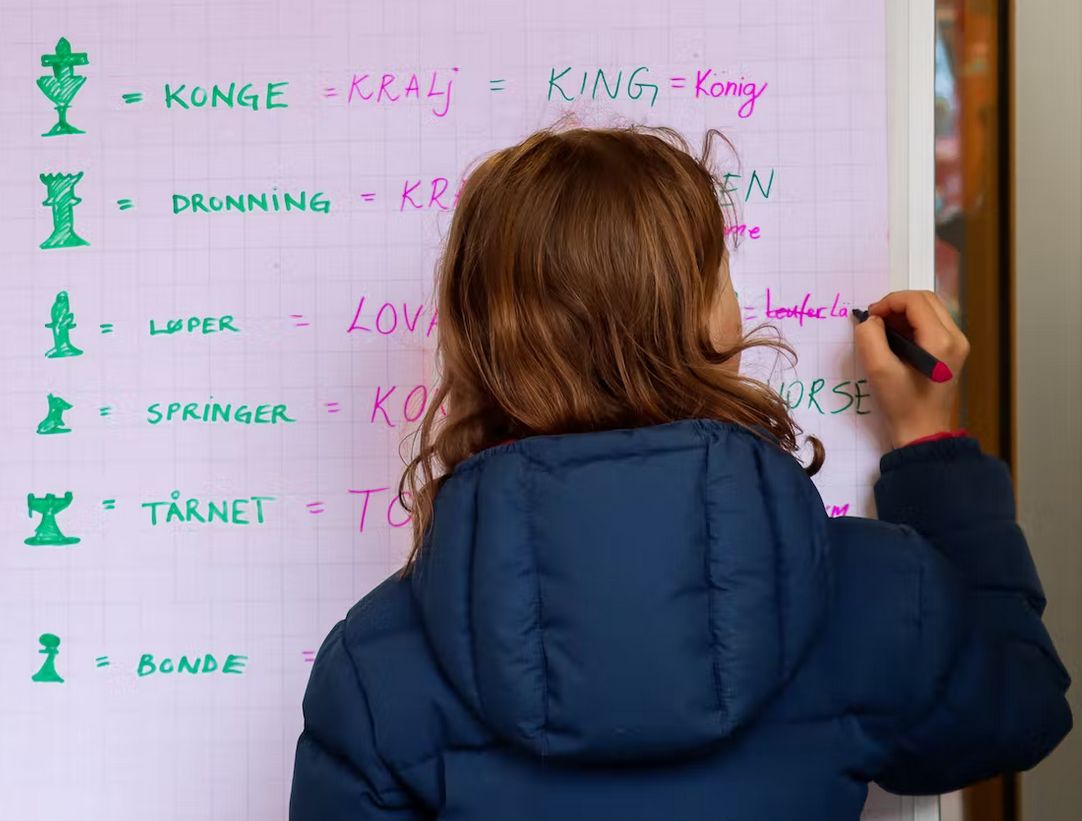 = KONGE = KRALJ = KING = König
= DRONNING = KR EN
me
= LØPER = LOV = Leufer Lä
= SPRINGER = KO HORSE
= TÅRNET = TO rm
= BONDE =